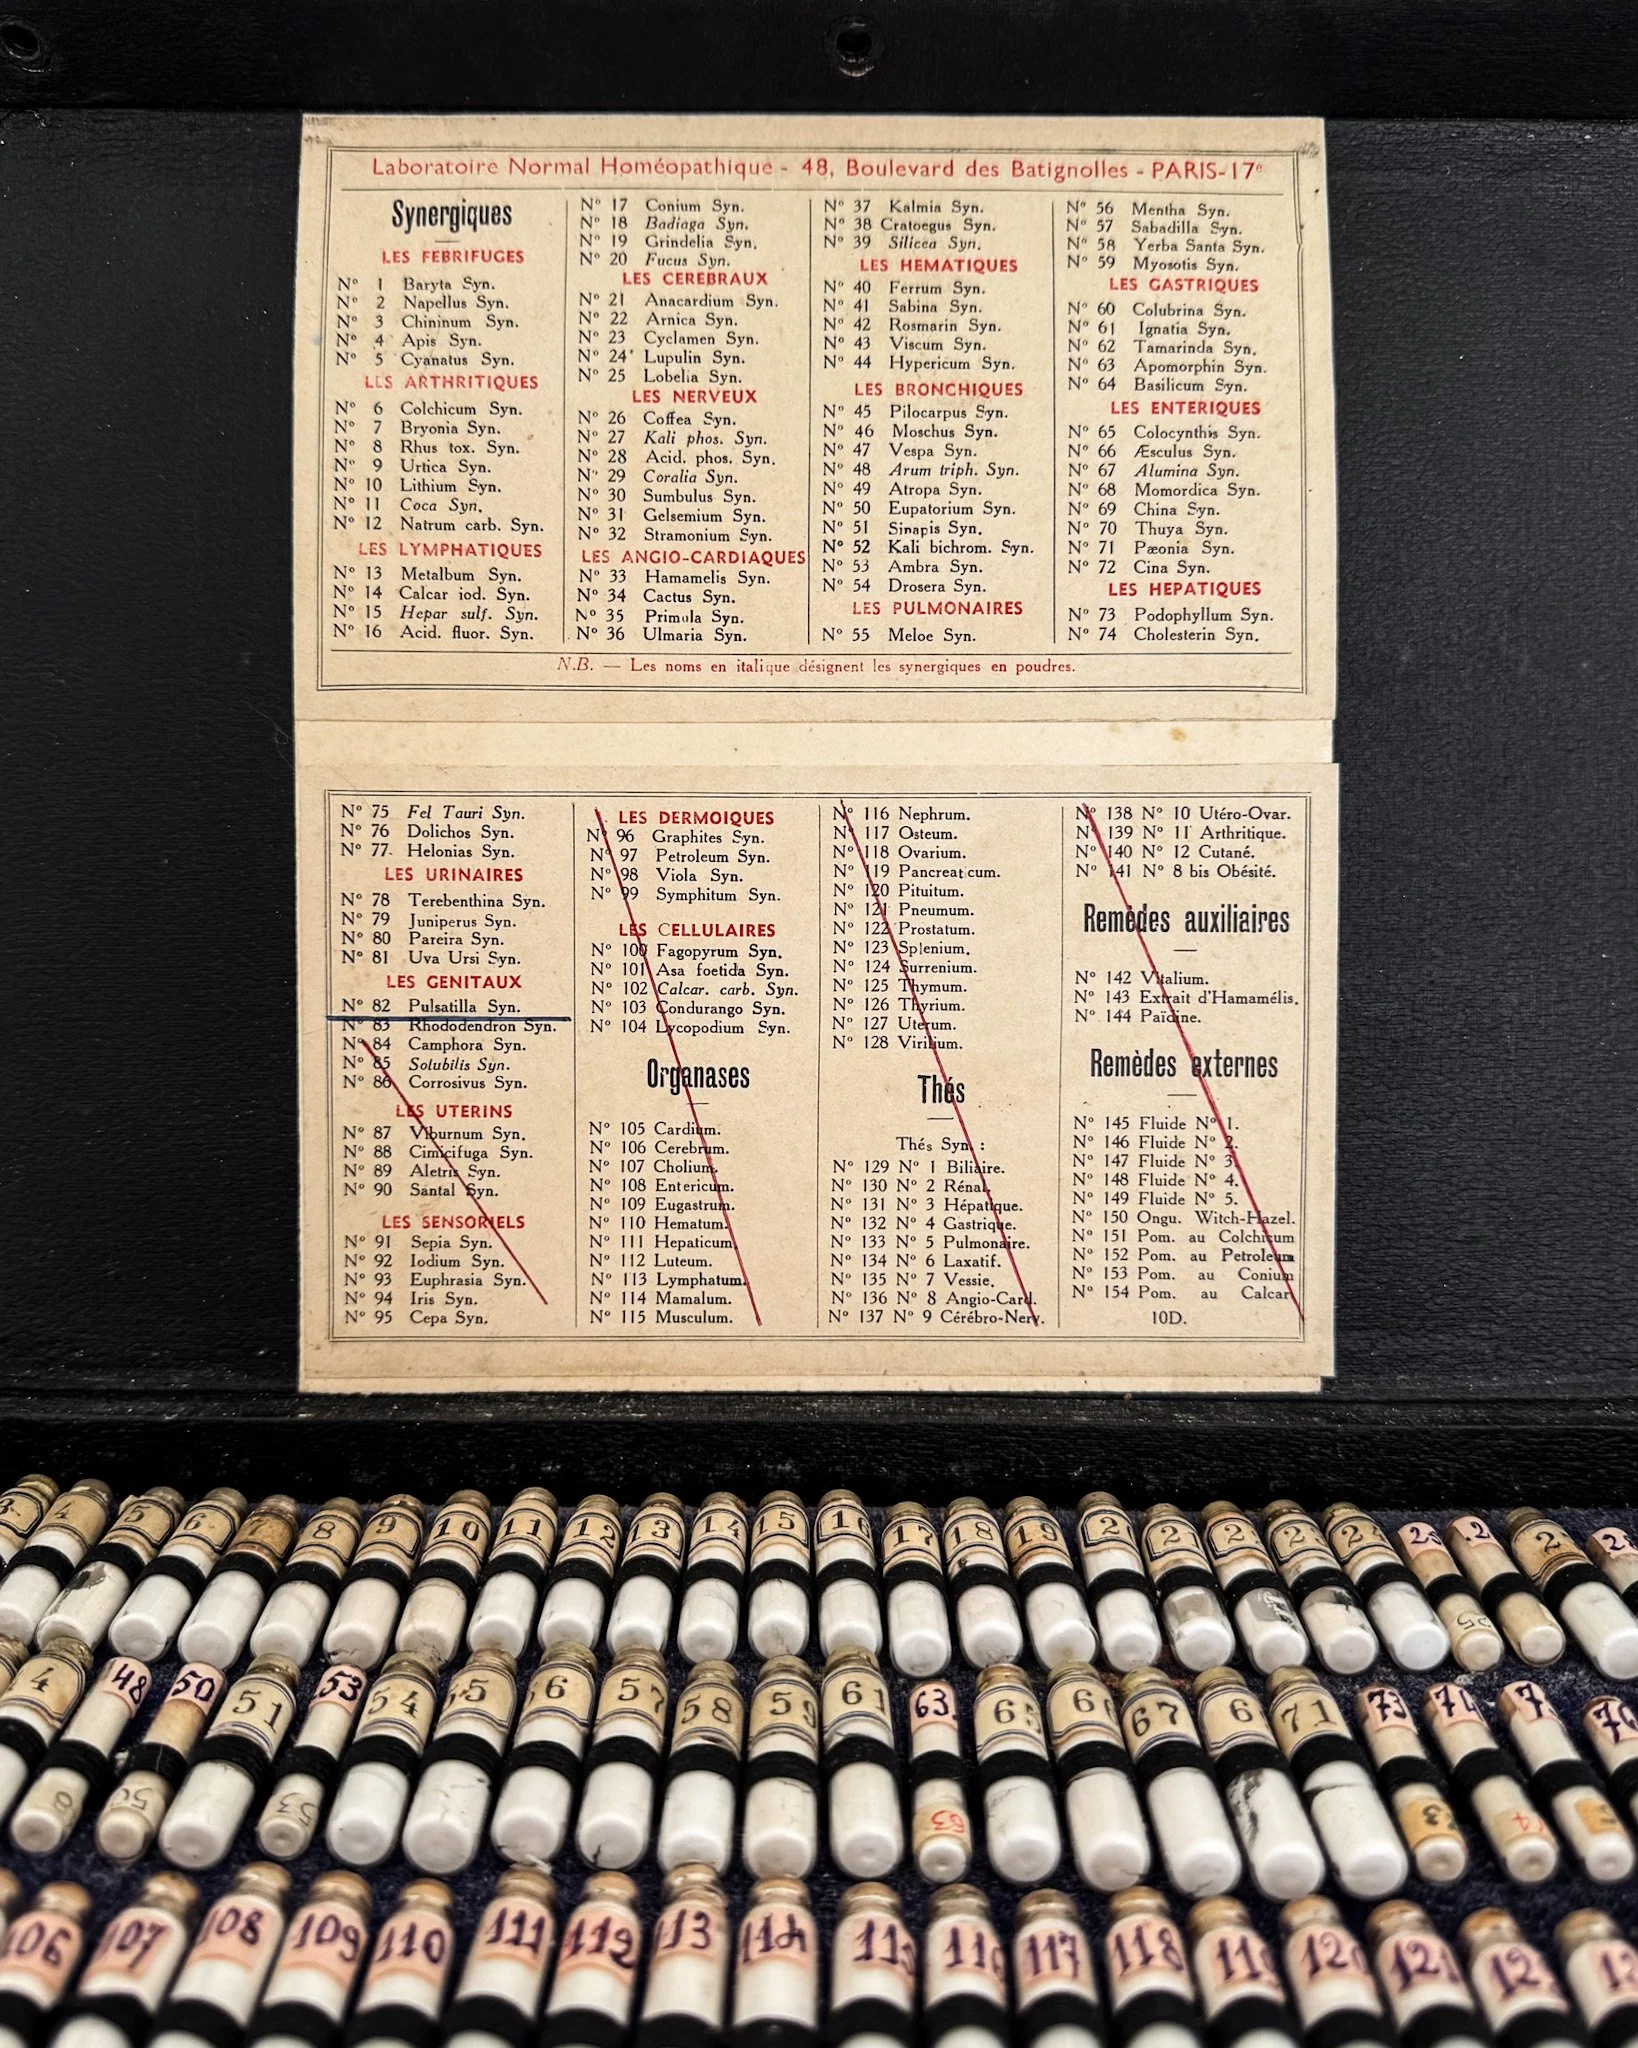 Laboratoire Normal Homéopathique - 48, Boulevard des Batignolles - PARIS-17e
Synergiques
LES FEBRIFUGES
No 1 Baryta Syn.
No 2 Napellus Syn.
No 3 Chininum Syn.
No 4 Apis Syn.
No 5 Cyanatus Syn.
LES ARTHRITIQUES
No 6 Colchicum Syn.
No 7 Bryonia Syn.
No 8 Rhus tox. Syn.
No 9 Urtica Syn.
No 10 Lithium Syn.
No 11 Coca Syn.
No 12 Natrum carb. Syn.
LES LYMPHATIQUES
No 13 Metalbum Syn.
No 14 Calcar iod. Syn.
No 15 Hepar sulf. Syn.
No 16 Acid. fluor. Syn.
No 17 Conium Syn.
No 18 Badiaga Syn.
No 19 Grindelia Syn.
No 20 Fucus Syn.
LES CEREBRAUX
No 21 Anacardium Syn.
No 22 Arnica Syn.
No 23 Cyclamen Syn.
No 24 Lupulin Syn.
No 25 Lobelia Syn.
LES NERVEUX
No 26 Coffea Syn.
No 27 Kali phos. Syn.
No 28 Acid. phos. Syn.
No 29 Coralia Syn.
No 30 Sumbulus Syn.
No 31 Gelsemium Syn.
No 32 Stramonium Syn.
LES ANGIO-CARDIAQUES
No 33 Hamamelis Syn.
No 34 Cactus Syn.
No 35 Primula Syn.
No 36 Ulmaria Syn.
No 37 Kalmia Syn.
No 38 Cratoegus Syn.
No 39 Silicea Syn.
LES HEMATIQUES
No 40 Ferrum Syn.
No 41 Sabina Syn.
No 42 Rosmarin Syn.
No 43 Viscum Syn.
No 44 Hypericum Syn.
LES BRONCHIQUES
No 45 Pilocarpus Syn.
No 46 Moschus Syn.
No 47 Vespa Syn.
No 48 Arum triph. Syn.
No 49 Atropa Syn.
No 50 Eupatorium Syn.
No 51 Sinapis Syn.
No 52 Kali bichrom. Syn.
No 53 Ambra Syn.
No 54 Drosera Syn.
LES PULMONAIRES
No 55 Meloe Syn.
No 56 Mentha Syn.
No 57 Sabadilla Syn.
No 58 Yerba Santa Syn.
No 59 Myosotis Syn.
LES GASTRIQUES
No 60 Colubrina Syn.
No 61 Ignatia Syn.
No 62 Tamarinda Syn.
No 63 Apomorphin Syn.
No 64 Basilicum Syn.
LES ENTERIQUES
No 65 Colocynthis Syn.
No 66 Æsculus Syn.
No 67 Alumina Syn.
No 68 Momordica Syn.
No 69 China Syn.
No 70 Thuya Syn.
No 71 Pæonia Syn.
No 72 Cina Syn.
LES HEPATIQUES
No 73 Podophyllum Syn.
No 74 Cholesterin Syn.
N.B. — Les noms en italique désignent les synergiques en poudres.
No 75 Fel Tauri Syn.
No 76 Dolichos Syn.
No 77 Helonias Syn.
LES URINAIRES
No 78 Terebenthina Syn.
No 79 Juniperus Syn.
No 80 Pareira Syn.
No 81 Uva Ursi Syn.
LES GENITAUX
No 82 Pulsatilla Syn.
No 83 Rhododendron Syn.
No 84 Camphora Syn.
No 85 Solubilis Syn.
No 86 Corrosivus Syn.
LES UTERINS
No 87 Viburnum Syn.
No 88 Cimicifuga Syn.
No 89 Aletris Syn.
No 90 Santal Syn.
LES SENSORIELS
No 91 Sepia Syn.
No 92 Iodium Syn.
No 93 Euphrasia Syn.
No 94 Iris Syn.
No 95 Cepa Syn.
LES DERMOIQUES
No 96 Graphites Syn.
No 97 Petroleum Syn.
No 98 Viola Syn.
No 99 Symphitum Syn.
LES CELLULAIRES
No 100 Fagopyrum Syn.
No 101 Asa foetida Syn.
No 102 Calcar. carb. Syn.
No 103 Condurango Syn.
No 104 Lycopodium Syn.
Organases
No 105 Cardium.
No 106 Cerebrum.
No 107 Cholium.
No 108 Entericum.
No 109 Eugastrum.
No 110 Hematum.
No 111 Hepaticum.
No 112 Luteum.
No 113 Lymphatum.
No 114 Mamalum.
No 115 Musculum.
No 116 Nephrum.
No 117 Osteum.
No 118 Ovarium.
No 119 Pancreaticum.
No 120 Pituitum.
No 121 Pneumum.
No 122 Prostatum.
No 123 Splenium.
No 124 Surrenium.
No 125 Thymum.
No 126 Thyrium.
No 127 Uterum.
No 128 Virilium.
Thés
Thés Syn. :
No 129 No 1 Biliaire.
No 130 No 2 Rénal.
No 131 No 3 Hépatique.
No 132 No 4 Gastrique.
No 133 No 5 Pulmonaire.
No 134 No 6 Laxatif.
No 135 No 7 Vessie.
No 136 No 8 Angio-Card.
No 137 No 9 Cérébro-Nerv.
No 138 No 10 Utéro-Ovar.
No 139 No 11 Arthritique.
No 140 No 12 Cutané.
No 141 No 8 bis Obésité.
Remèdes auxiliaires
No 142 Vitalium.
No 143 Extrait d'Hamamélis.
No 144 Païdine.
Remèdes externes
No 145 Fluide No 1.
No 146 Fluide No 2.
No 147 Fluide No 3.
No 148 Fluide No 4.
No 149 Fluide No 5.
No 150 Ongu. Witch-Hazel.
No 151 Pom. au Colchicum
No 152 Pom. au Petroleum
No 153 Pom. au Conium
No 154 Pom. au Calcar
10D.
3 4 5 6 7 8 9 10 11 12 13 14 15 16 17 18 19
48 50 51 53 54 55 56 57 58 59 61 63 65 66 67 71 73 74
50 53 63 73
106 107 108 109 110 111 112 113 114 115 116 117 118 119 120 121